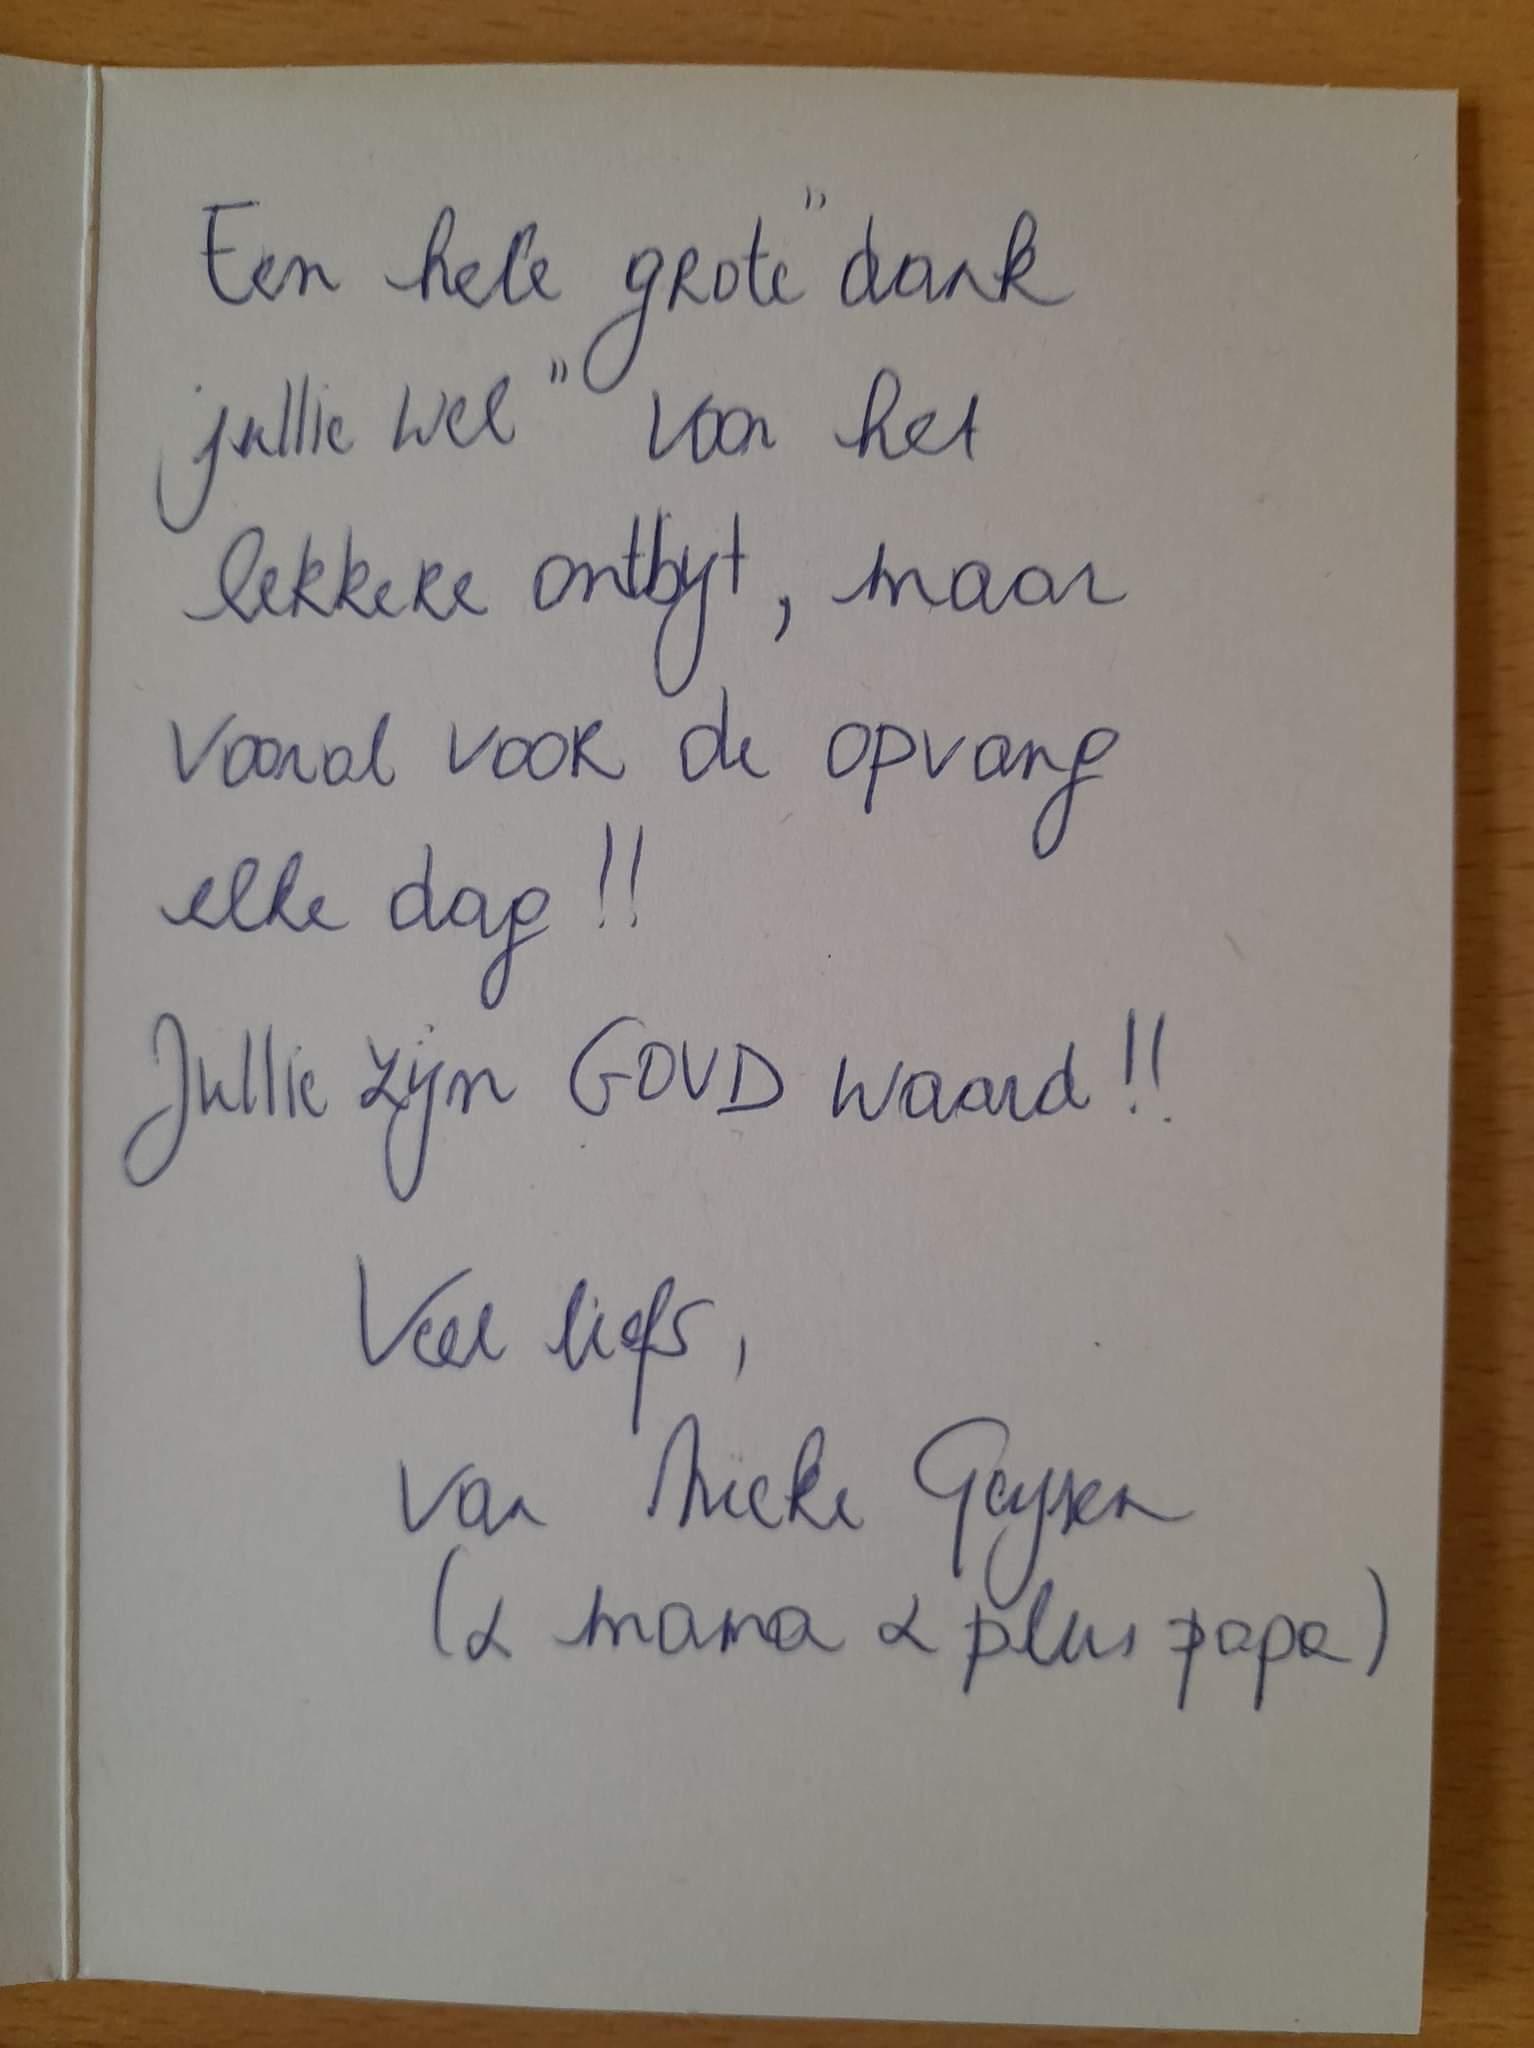 Een hele grote "dank
jullie wel" voor het
lekkere ontbijt, maar
vooral voor de opvang
elke dag!!
Jullie zijn GOUD waard!!
Veel liefs,
van Mieke Geysen
(& mama & plus papa)